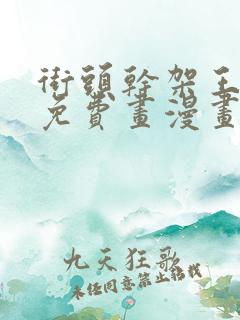 街頭幹架王
免費畫漫畫
九天狂歌
未经同意禁止转载